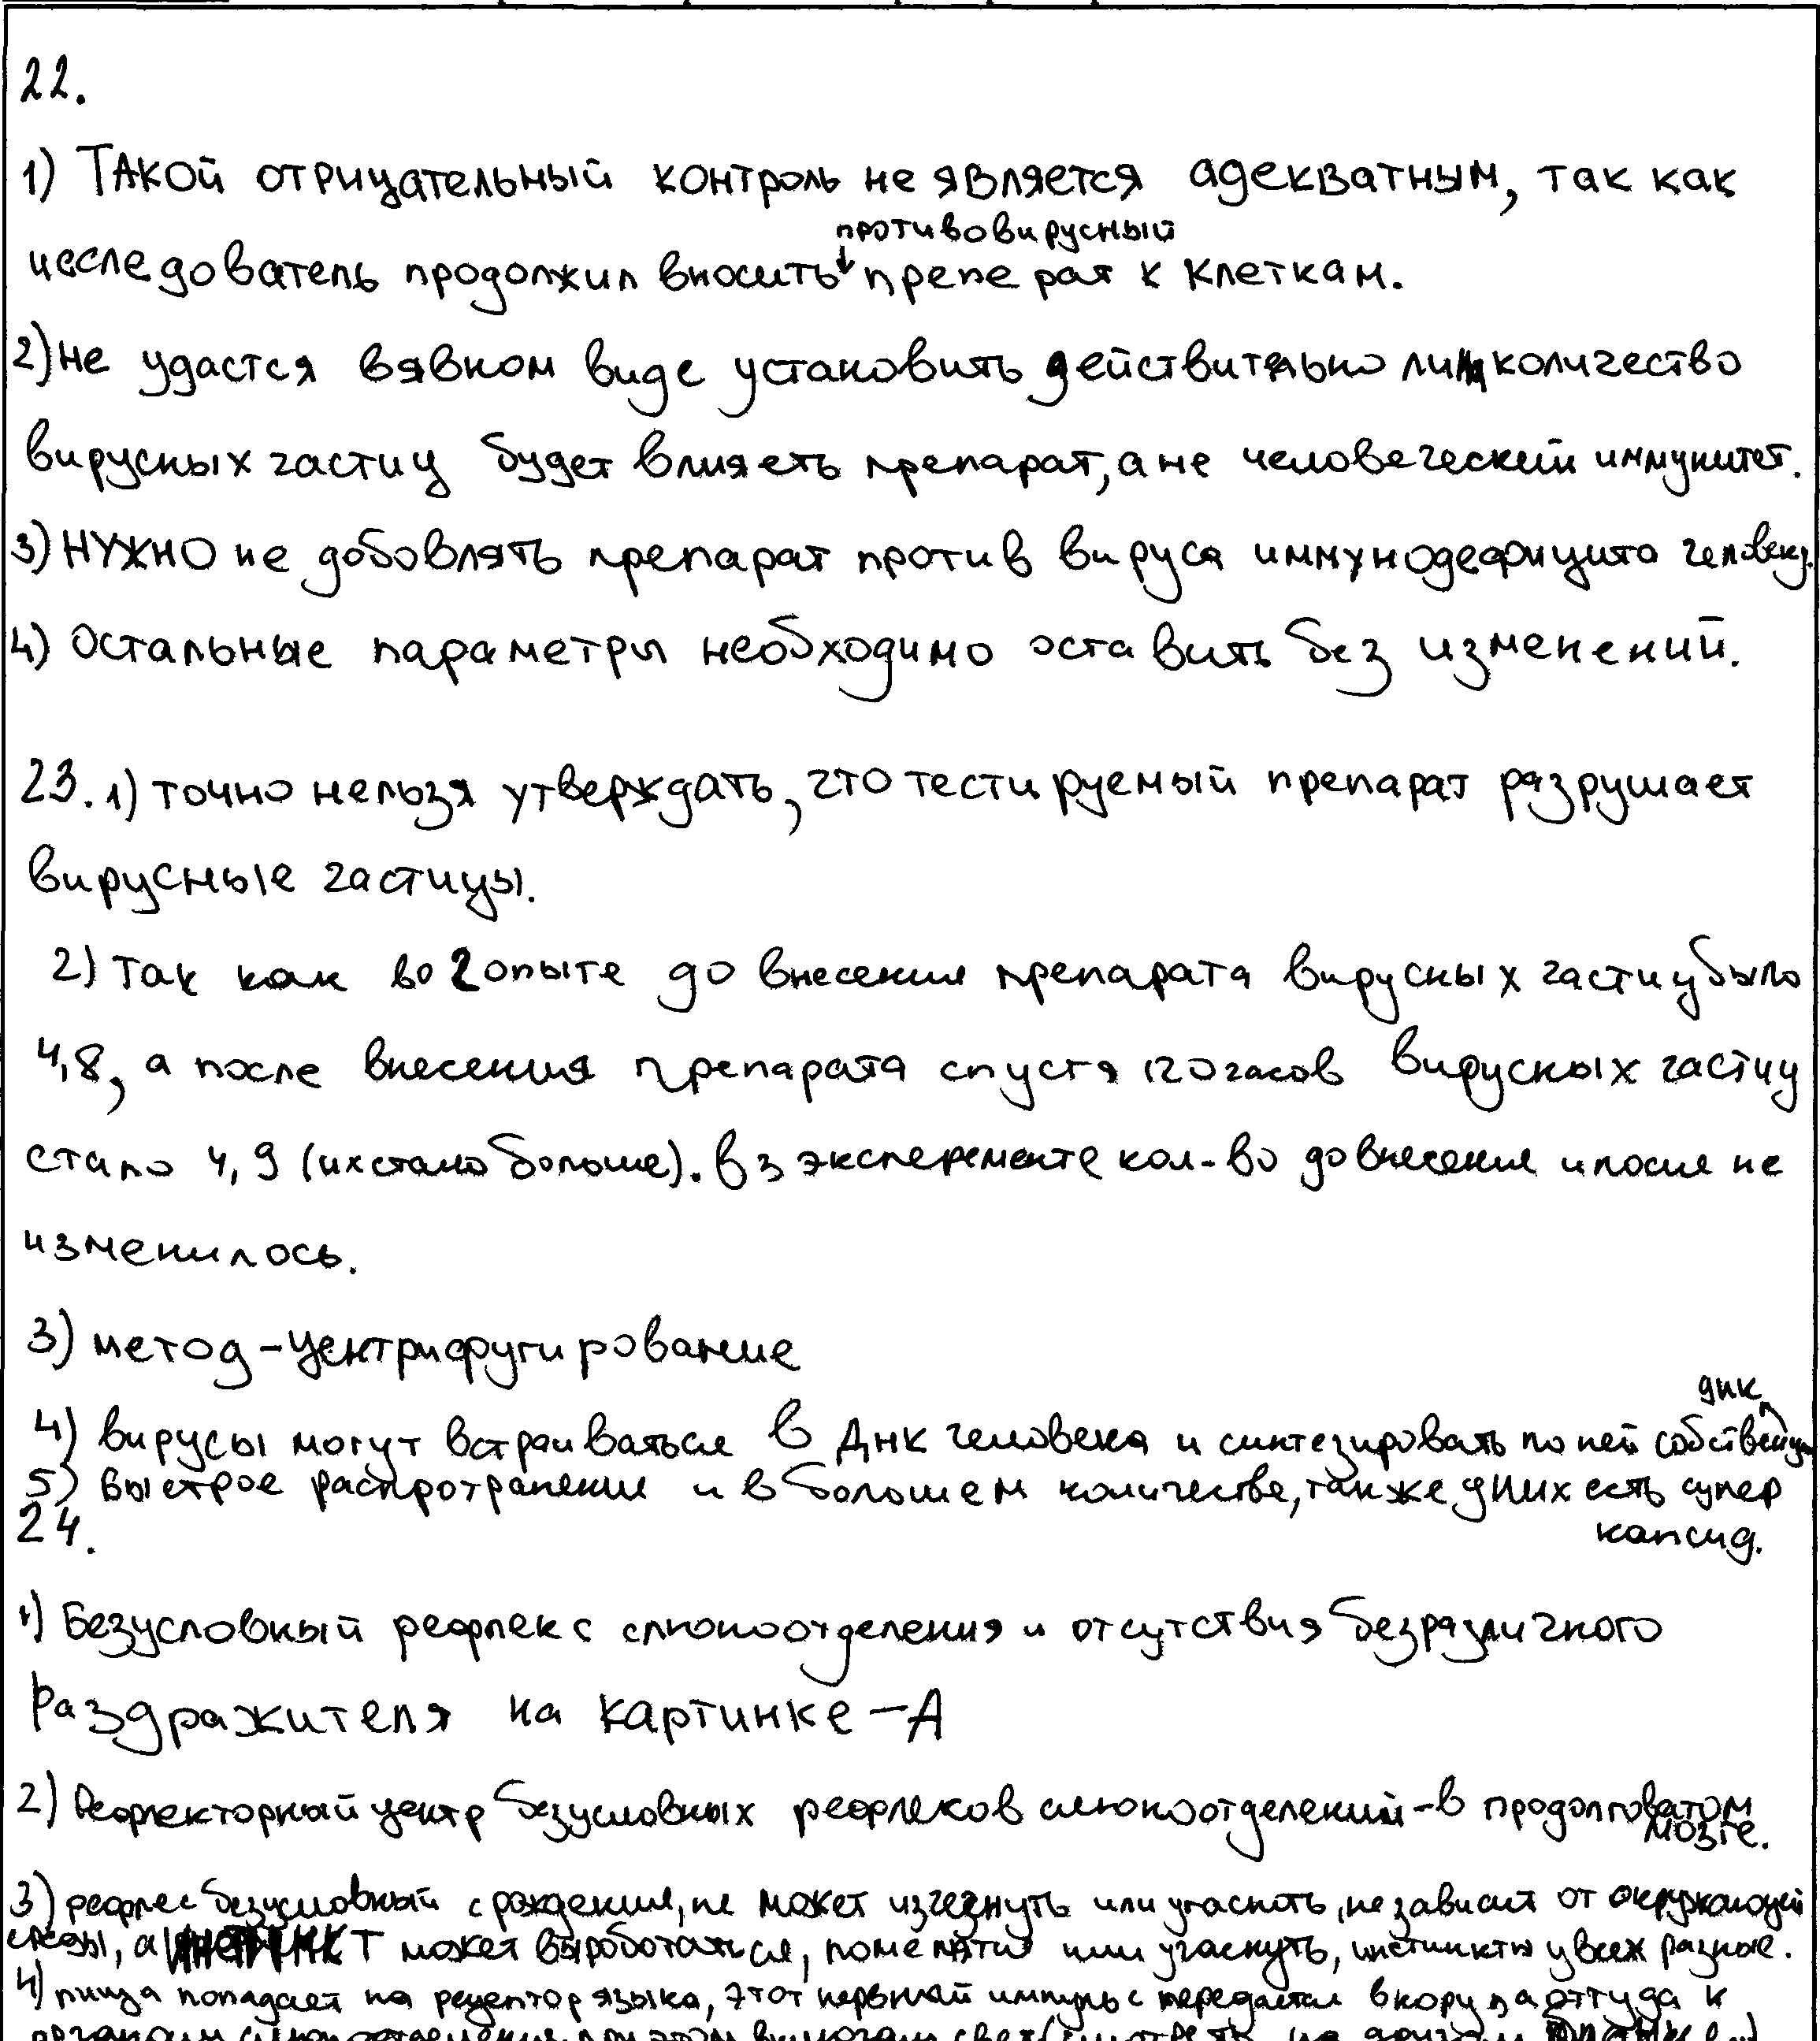 22.
1) Такой отрицательный контроль не является адекватным, так как
противовирусный
исследователь продолжил вносить преперат к клеткам.
2) не удастся в явном виде установить действительно ли на количество
вирусных частиц будет влияеть препарат, а не человеческий иммунитет.
3) Нужно не добовлять препарат против вируса иммунодефицита человека.
4) Остальные параметры необходимо оставить без изменений.
23. 1) точно нельзя утверждать, что тестируемый препарат разрушает
вирусные частицы.
2) Так как во 2 опыте до внесения препарата вирусных частиц было
4,8, а после внесения препарата спустя 120 часов вирусных частиц
стало 4,9 (их стало больше). в 3 эксперементе кол-во до внесения и после не
изменилось.
3) метод - центрифугирование
днк
4) вирусы могут встраиваться в ДНК человека и синтезировать по ней собственную
5) быстрое распротранение и в большем количестве, также у них есть супер
капсид.
24.
1) Безусловный рефлекс слюноотделения и отсутствия безразличного
раздражителя на картинке - А
2) Рефлекторный центр безусловных рефлеков слюноотделений - в продолговатом
мозге.
3) рефлес безусловный с рождения, не может изчезнуть или угаснуть, не зависит от окружающей
среды, а может выроботаться, поменятся или угаснуть, инстинкты у всех разные.
4) пища попадает на рецептор языка, этот нервный импульс передается в кору, а оттуда к
органам слюноотделения, при этом